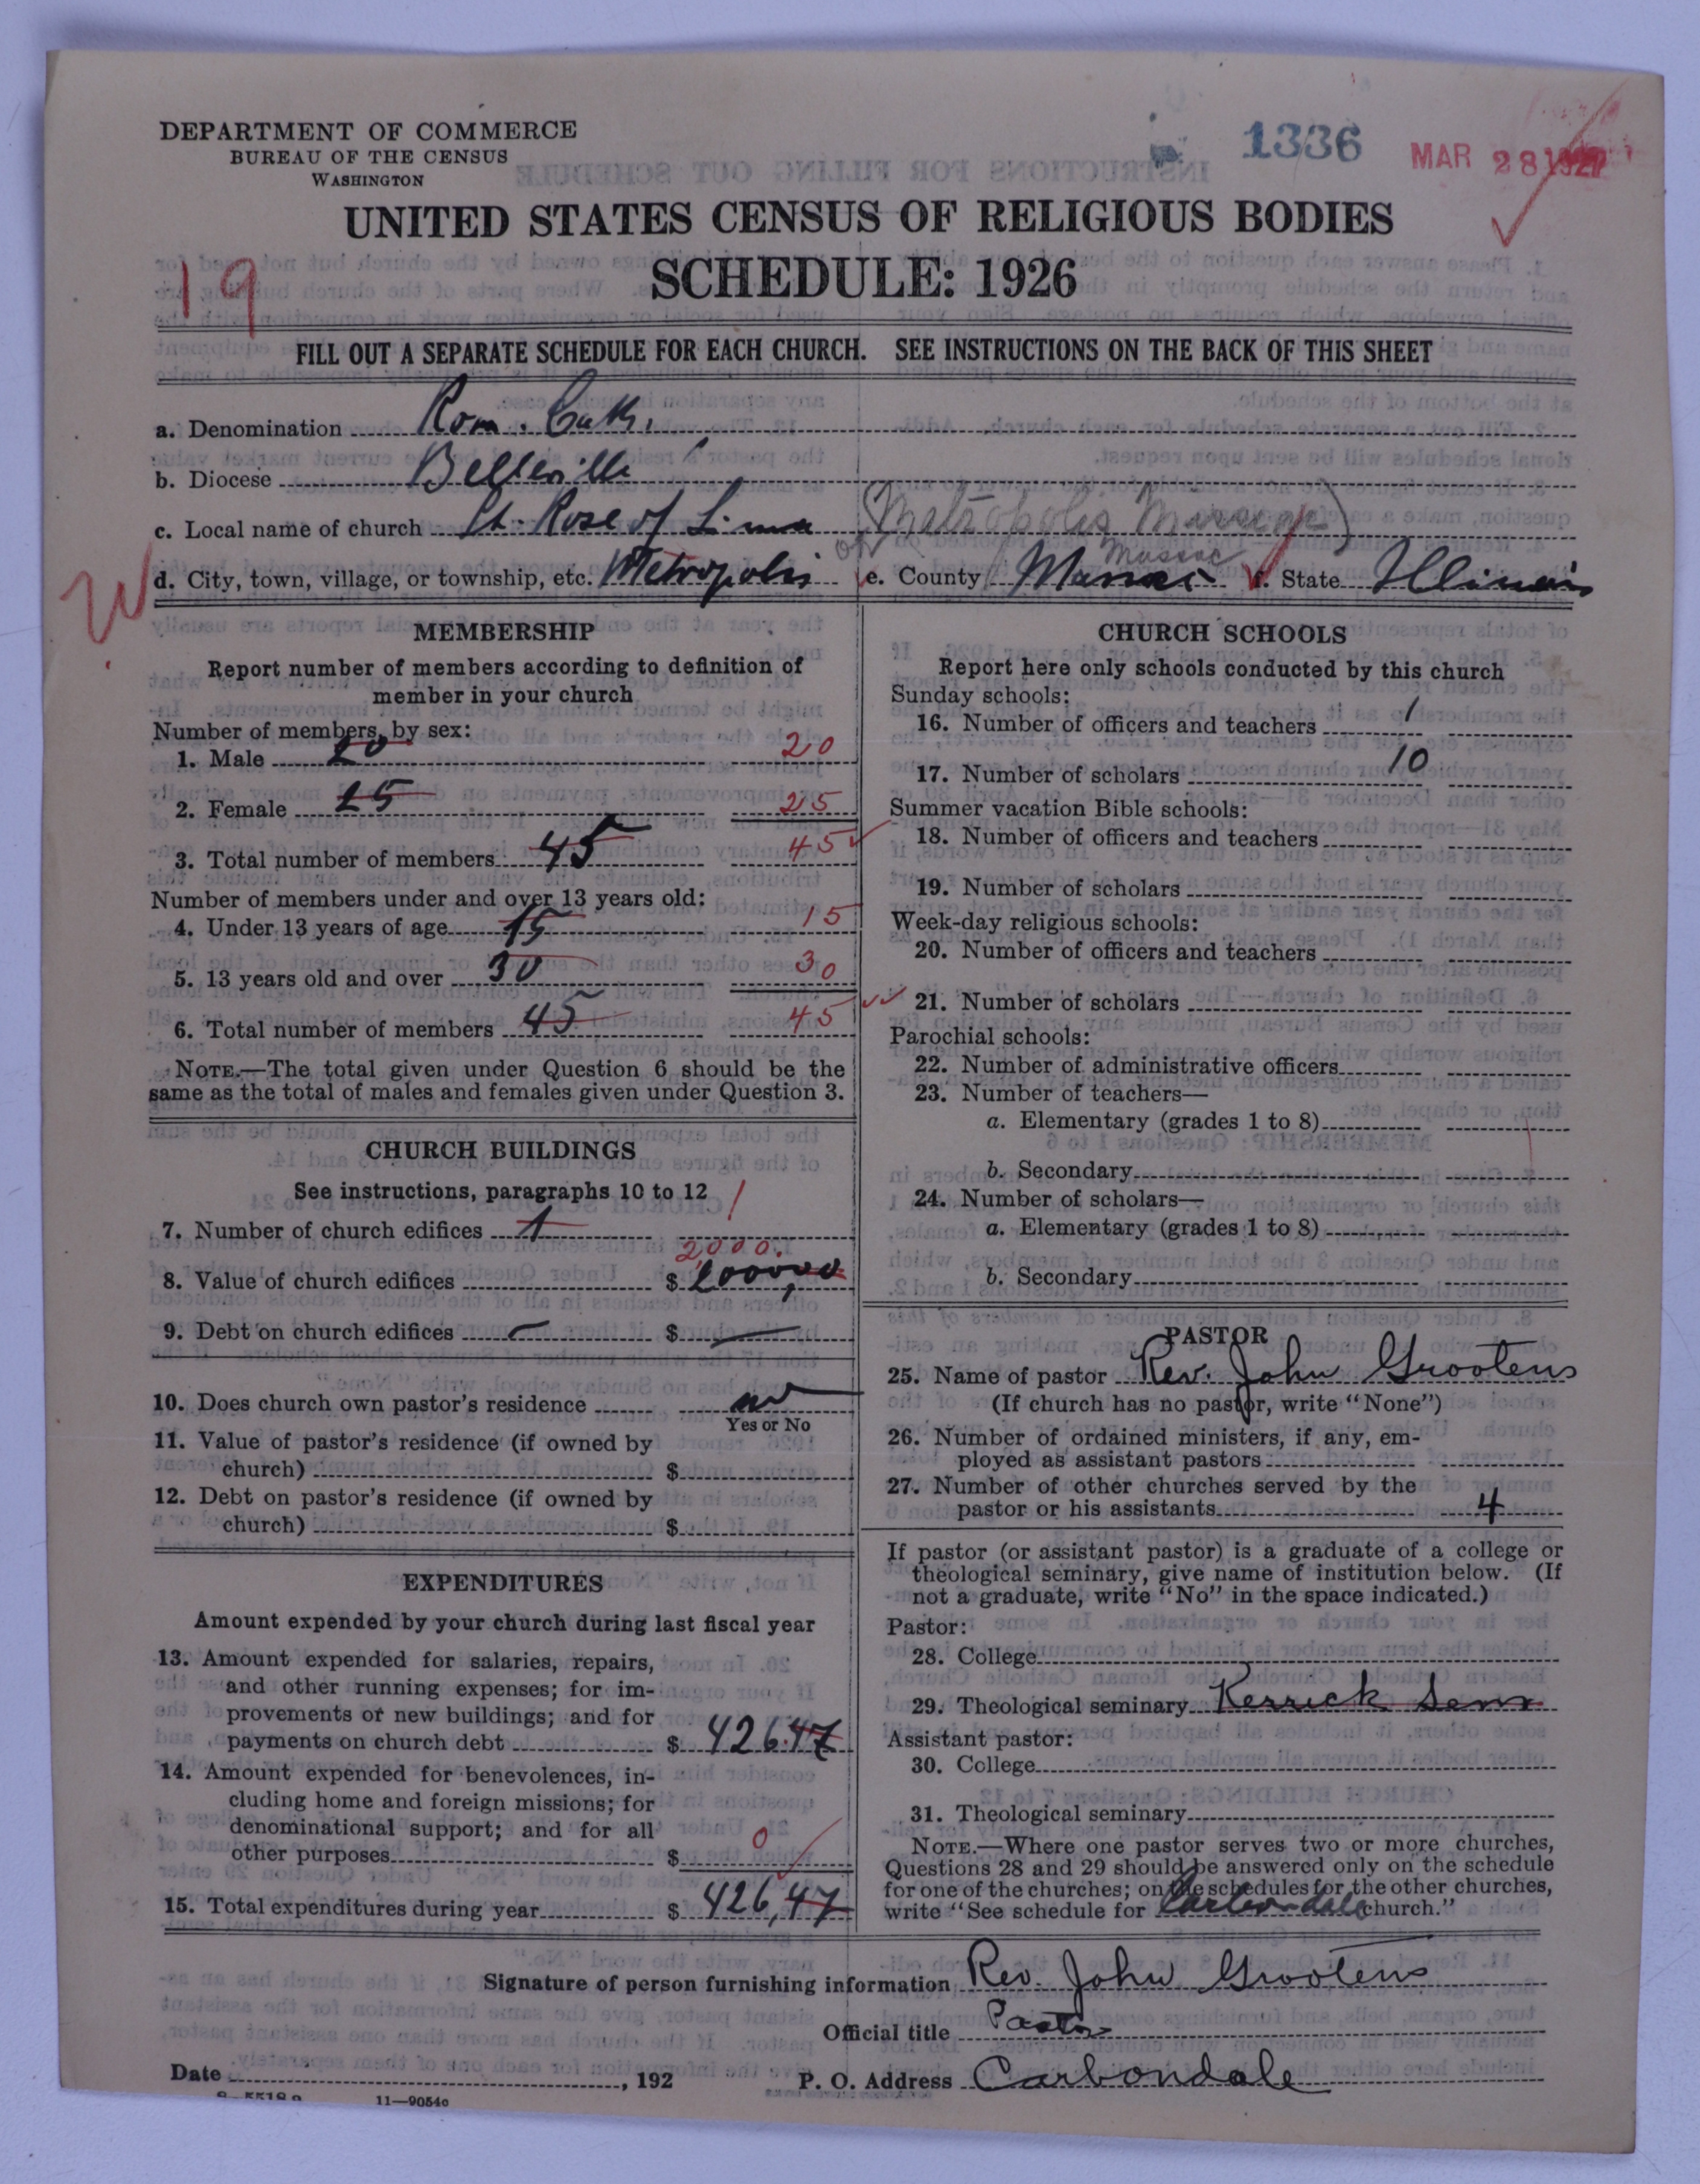 DEPARTMENT OF COMMERCE
BUREAU OF THE CENSUS
WASHINGTON
1336
MAR 28 1927
UNITED STATES CENSUS OF RELIGIOUS BODIES
SCHEDULE: 1926
19
FILL OUT A SEPARATE SCHEDULE FOR EACH CHURCH. SEE INSTRUCTIONS ON THE BACK OF THIS SHEET
a. Denomination Rom. Cath.
b. Diocese Belleville
c. Local name of church St. Rose of Lima (Metropolis
Massac
d. City, town, village, or township, etc. Metropolis e. County Massac f. State Illinois
MEMBERSHIP
Report number of members according to definition of
member in your church
Number of members, by sex:
1. Male 20 20
2. Female 25 25
3. Total number of members 45 45
Number of members under and over 13 years old:
4. Under 13 years of age 15 15
5. 13 years old and over 30 30
6. Total number of members 45 45
NOTE.—The total given under Question 6 should be the
same as the total of males and females given under Question 3.
CHURCH BUILDINGS
See instructions, paragraphs 10 to 12
7. Number of church edifices 1 1
2000.
8. Value of church edifices $ 2000,00
9. Debt on church edifices — $ —
10. Does church own pastor's residence no
Yes or No
11. Value of pastor's residence (if owned by
church) $
12. Debt on pastor's residence (if owned by
church) $
EXPENDITURES
Amount expended by your church during last fiscal year
13. Amount expended for salaries, repairs,
and other running expenses; for im-
provements or new buildings; and for
payments on church debt $ 426.47
14. Amount expended for benevolences, in-
cluding home and foreign missions; for
denominational support; and for all
other purposes $ 0
15. Total expenditures during year $ 426,47
CHURCH SCHOOLS
Report here only schools conducted by this church
Sunday schools:
16. Number of officers and teachers 1
17. Number of scholars 10
Summer vacation Bible schools:
18. Number of officers and teachers
19. Number of scholars
Week-day religious schools:
20. Number of officers and teachers
21. Number of scholars
Parochial schools:
22. Number of administrative officers
23. Number of teachers—
a. Elementary (grades 1 to 8)
b. Secondary
24. Number of scholars—
a. Elementary (grades 1 to 8)
b. Secondary
PASTOR
25. Name of pastor Rev. John Grootens
(If church has no pastor, write "None")
26. Number of ordained ministers, if any, em-
ployed as assistant pastors
27. Number of other churches served by the
pastor or his assistants 4
If pastor (or assistant pastor) is a graduate of a college or
theological seminary, give name of institution below. (If
not a graduate, write "No" in the space indicated.)
Pastor:
28. College
29. Theological seminary Kerrick Sem
Assistant pastor:
30. College
31. Theological seminary
NOTE.—Where one pastor serves two or more churches,
Questions 28 and 29 should be answered only on the schedule
for one of the churches; on the schedules for the other churches,
write "See schedule for Carbondale church."
Signature of person furnishing information Rev. John Grootens
Official title Pastor
Date , 192
P. O. Address Carbondale
8—5518a 11—9054o